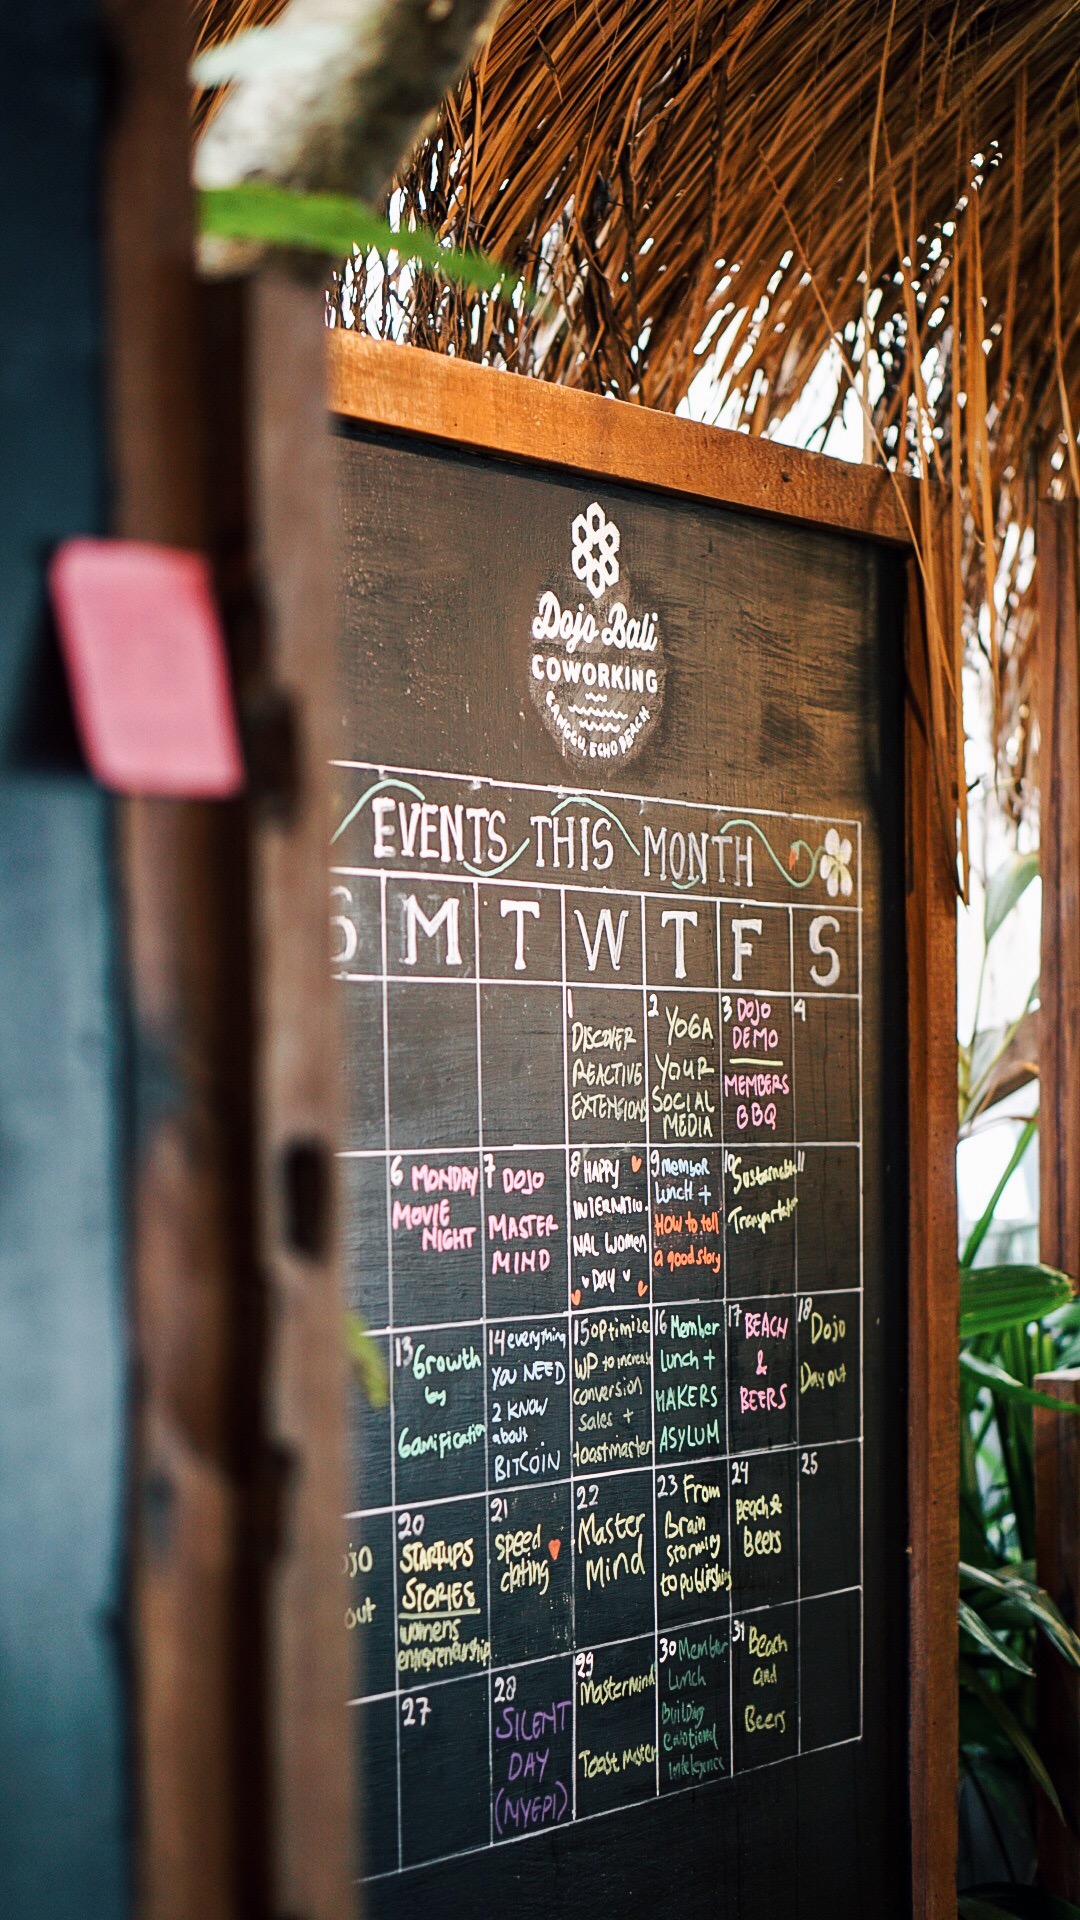 Dojo Bali
COWORKING
CANGGU, ECHO BEACH
EVENTS THIS MONTH
S M T W T F S
1
DISCOVER
REACTIVE
EXTENSIONS
2
YOGA
YOUR
SOCIAL
MEDIA
3 DOJO
DEMO
MEMBERS
BBQ
4
6 MONDAY
MOVIE
NIGHT
7 DOJO
MASTER
MIND
8 HAPPY
INTERNATIO
NAL WOMEN
DAY
9 member
lunch +
How to tell
a good story
10 Sustainable
Transportation
11
13 Growth
by
Gamification
14 everything
YOU NEED
2 KNOW
about
BITCOIN
15 optimize
WP to increase
conversion
sales +
toastmaster
16 Member
lunch +
MAKERS
ASYLUM
17 BEACH
&
BEERS
18 Dojo
Day out
ojo
out
20
STARTUPS
STORIES
womens
entrepreneurship
21
speed
dating
22
Master
Mind
23 From
Brain
storming
to publishing
24
Beach &
Beers
25
27
28
SILENT
DAY
(NYEPI)
29
Mastermind
Toast Master
30 Member
Lunch
Building
emotional
intelegence
31 Beach
and
Beers